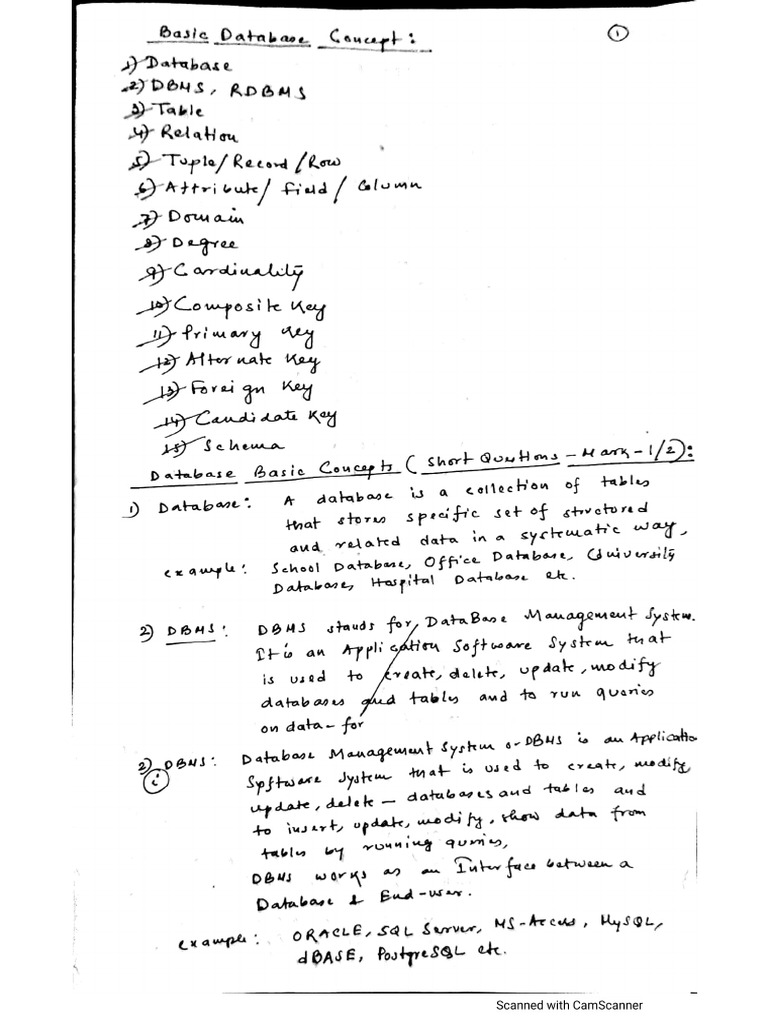 Basic Database Concept:
1
1) Database
2) DBMS, RDBMS
3) Table
4) Relation
5) Tuple/Record/Row
6) Attribute/ field/ Column
7) Domain
8) Degree
9) Cardinality
10) Composite Key
11) Primary Key
12) Alternate Key
13) Foreign Key
14) Candidate Key
15) Schema
Database Basic Concepts (Short Questions - Mark - 1/2):
1) Database: A database is a collection of tables
that stores specific set of structured
and related data in a systematic way,
example: School Database, Office Database, University
Database, Hospital Database etc.
2) DBMS: DBMS stands for DataBase Management System.
It is an Application Software System that
is used to create, delete, update, modify
databases and tables and to run queries
on data - for
2) DBMS: Database Management System or DBMS is an Applicatio
i
Software System that is used to create, modify
update, delete - databases and tables and
to insert, update, modify, show data from
tables by running queries,
DBMS works as an Interface between a
Database & End-user.
example: ORACLE, SQL Server, MS-Access, MySQL,
dBASE, PostgreSQL etc.
Scanned with CamScanner